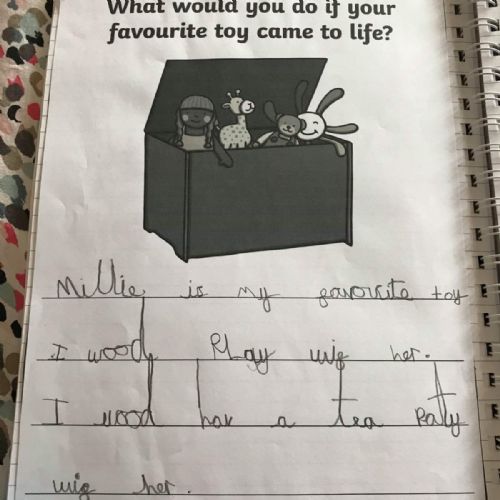 What would you do if your
favourite toy came to life?
Millie is my favourite toy
I wood play wig her.
I wood hav a tea paty
wig her.